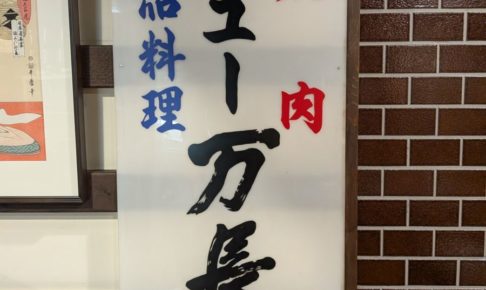 肉
ュー万長
品料理